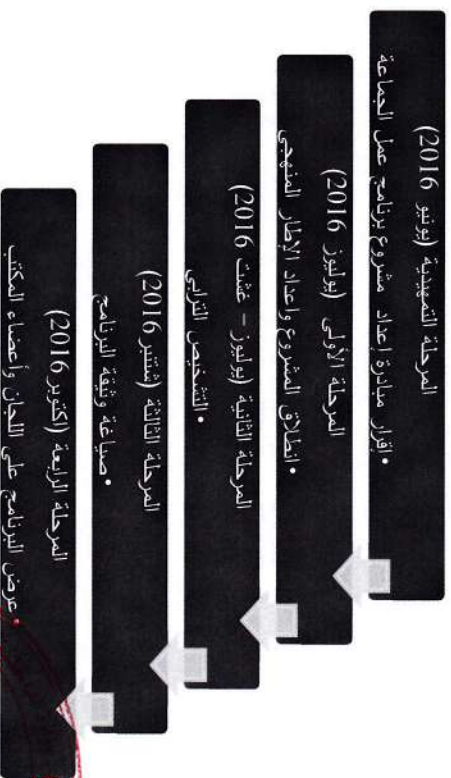 المرحلة التمهيدية (يونيو 2016)
•إقرار مبادرة إعداد مشروع برنامج عمل الجماعة
المرحلة الأولى (يوليوز 2016)
•انطلاق المشروع وإعداد الإطار المنهجي
المرحلة الثانية (يوليوز - غشت 2016)
•التشخيص الترابي
المرحلة الثالثة (شتنبر 2016)
•صياغة وثيقة البرنامج
المرحلة الرابعة (اكتوبر 2016)
•عرض البرنامج على اللجان وأعضاء المكتب